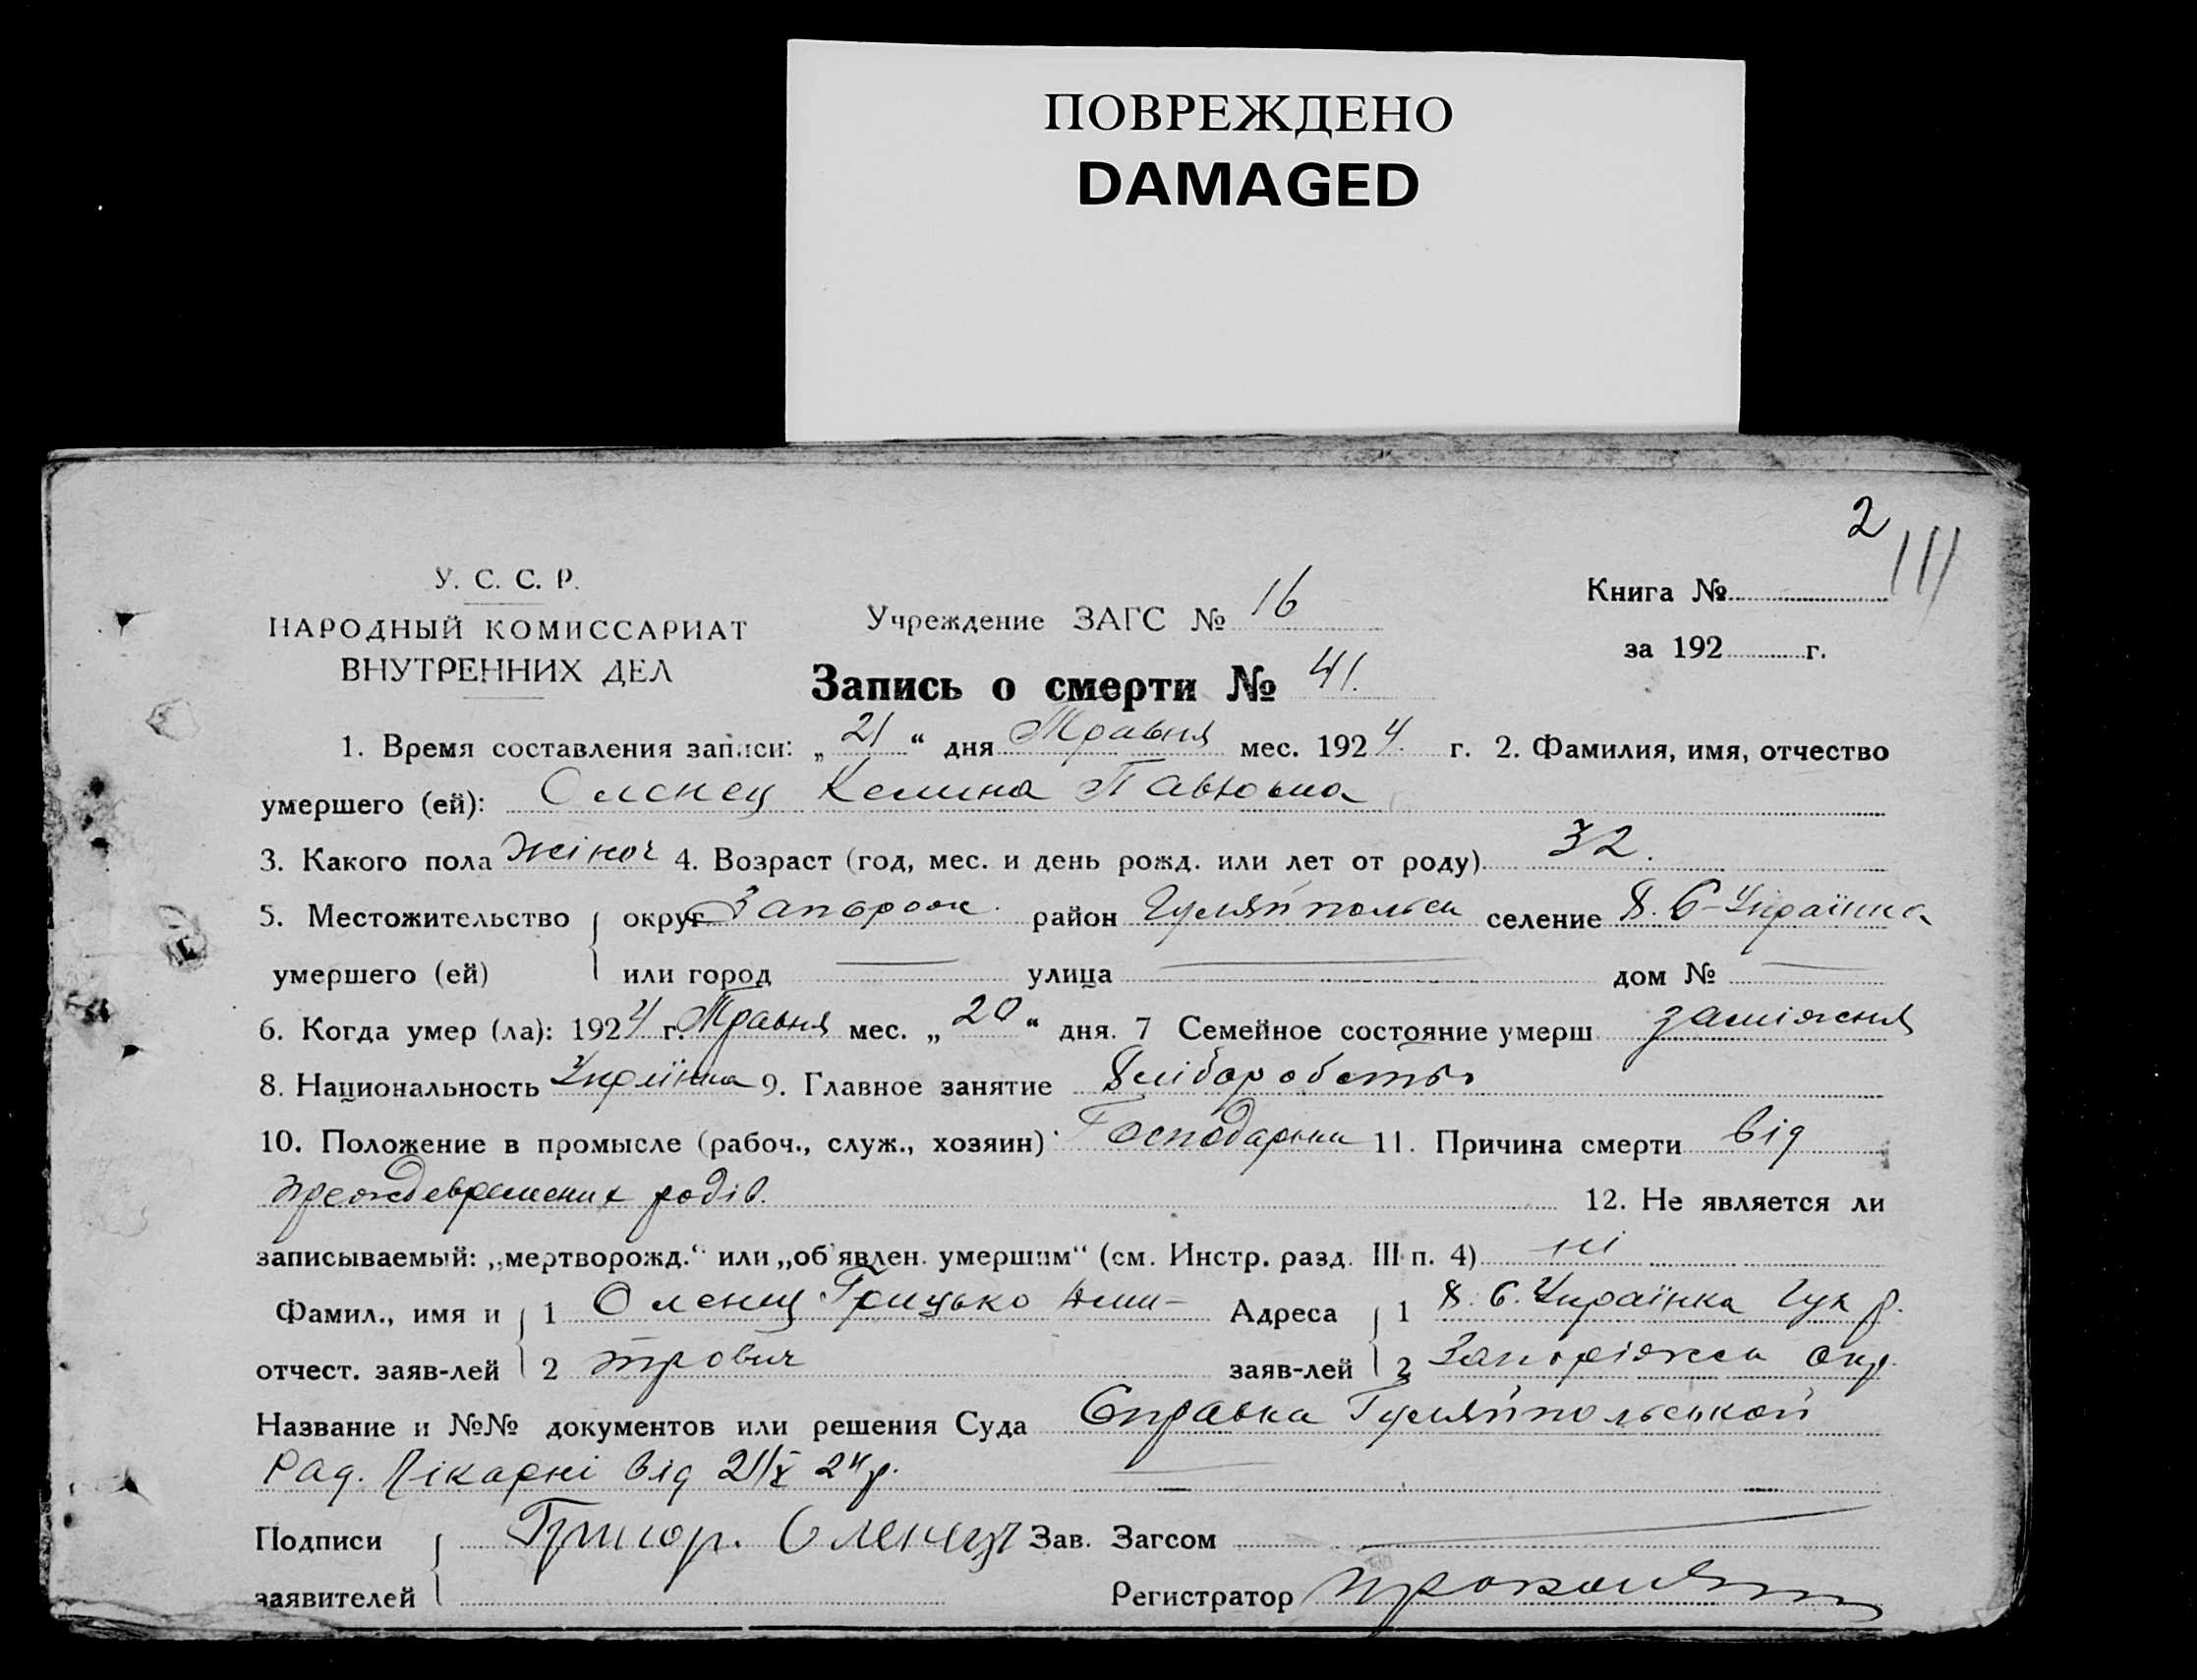 ПОВРЕЖДЕНО
DAMAGED
2
111
У. С. С. Р.
НАРОДНЫЙ КОМИССАРИАТ
ВНУТРЕННИХ ДЕЛ
Учреждение ЗАГС № 16
Книга №
за 192 г.
Запись о смерти № 41.
1. Время составления записи: „21“ дня Травня мес. 1924 г. 2. Фамилия, имя, отчество
умершего (ей): Оленец Килина Павловна
3. Какого пола жіноч 4. Возраст (год, мес. и день рожд. или лет от роду) 32.
5. Местожительство округ район Гуляйпольск селение В. С-Українка
умершего (ей) или город — улица — дом № —
6. Когда умер (ла): 1924 г. Травня мес. „20“ дня. 7 Семейное состояние умерш. заміжня
8. Национальность Українка 9. Главное занятие Хліборобство
10. Положение в промысле (рабоч., служ., хозяин) Господарка 11. Причина смерти від
преждевремених родів. 12. Не является ли
записываемый: „мертворожд.“ или „об'явлен. умершим“ (см. Инстр. разд. III п. 4) ні
Фамил., имя и 1 Оленец Грицько Дми- Адреса 1 В. С. Українка Гул р.
отчест. заяв-лей 2 трович заяв-лей 2 Запоріжск окр.
Название и №№ документов или решения Суда Справка Гуляйпольськой
Рад. Лікарні від 21/V 24р. —
Подписи Григор. Оленец Зав. Загсом —
заявителей Регистратор